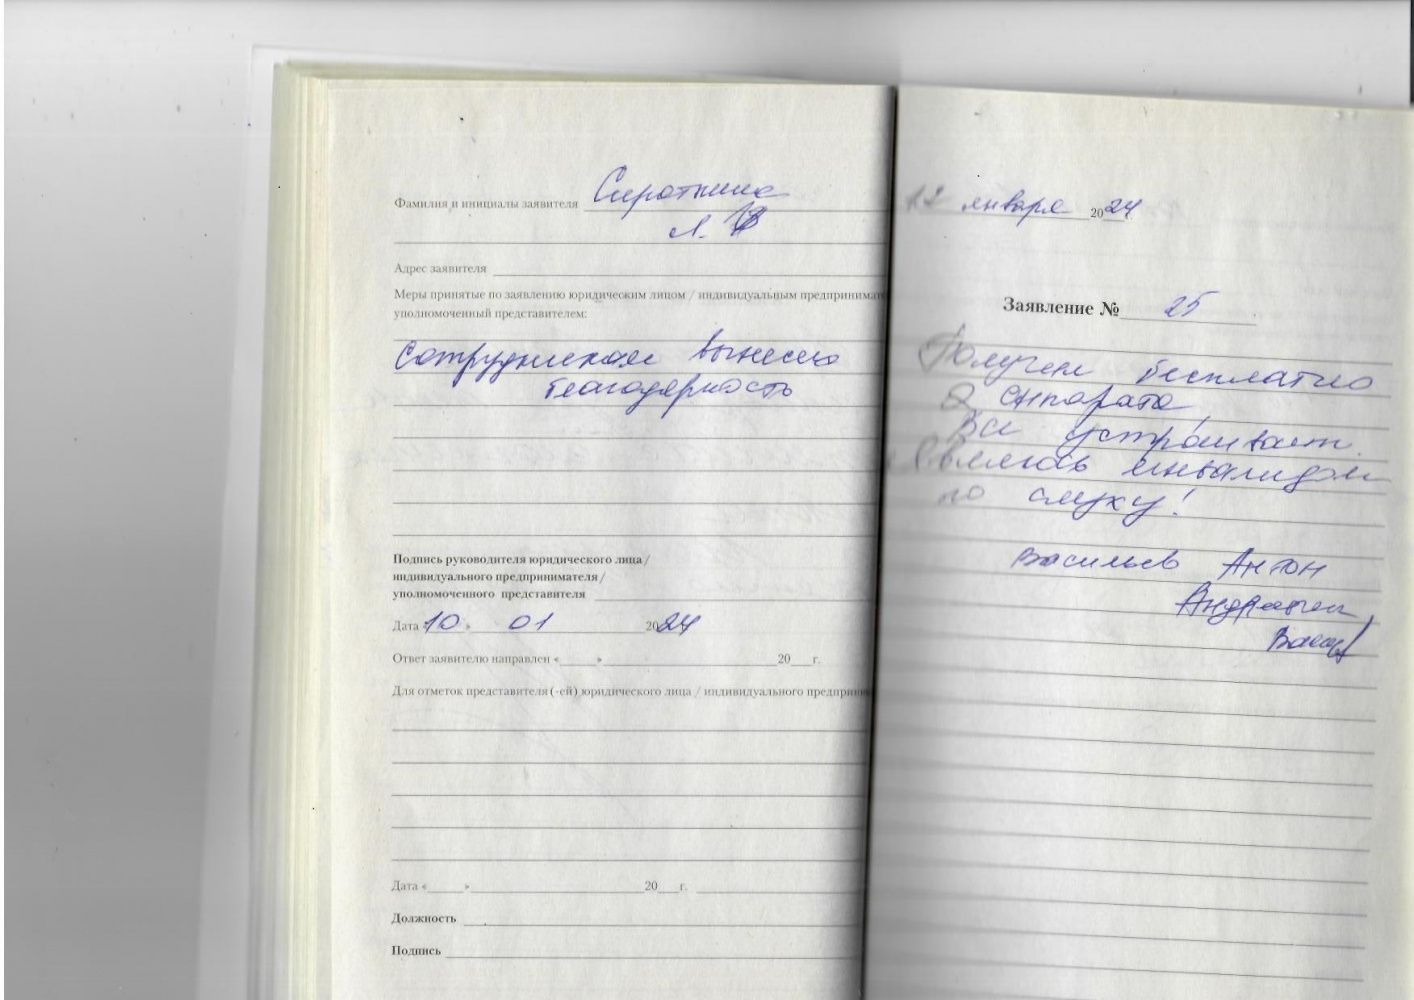 Фамилия и инициалы заявителя Сироткина
Л. В
Адрес заявителя
Меры принятые по заявлению юридическим лицом / индивидуальным предпринимат
уполномоченный представителем:
сотрудникам вынесена
благодарность
Подпись руководителя юридического лица /
индивидуального предпринимателя /
уполномоченного представителя
Дата «10» 01 2024
Ответ заявителю направлен «____»____ 20___г.
Для отметок представителя (-ей) юридического лица / индивидуального предприн
Дата «____»____ 20___г.
Должность
Подпись
12 января 2024 г.
Заявление № 25
Получил бесплатно
2 аппарата
Все устраивает.
Являюсь инвалидом
по слуху!
Васильев Антон